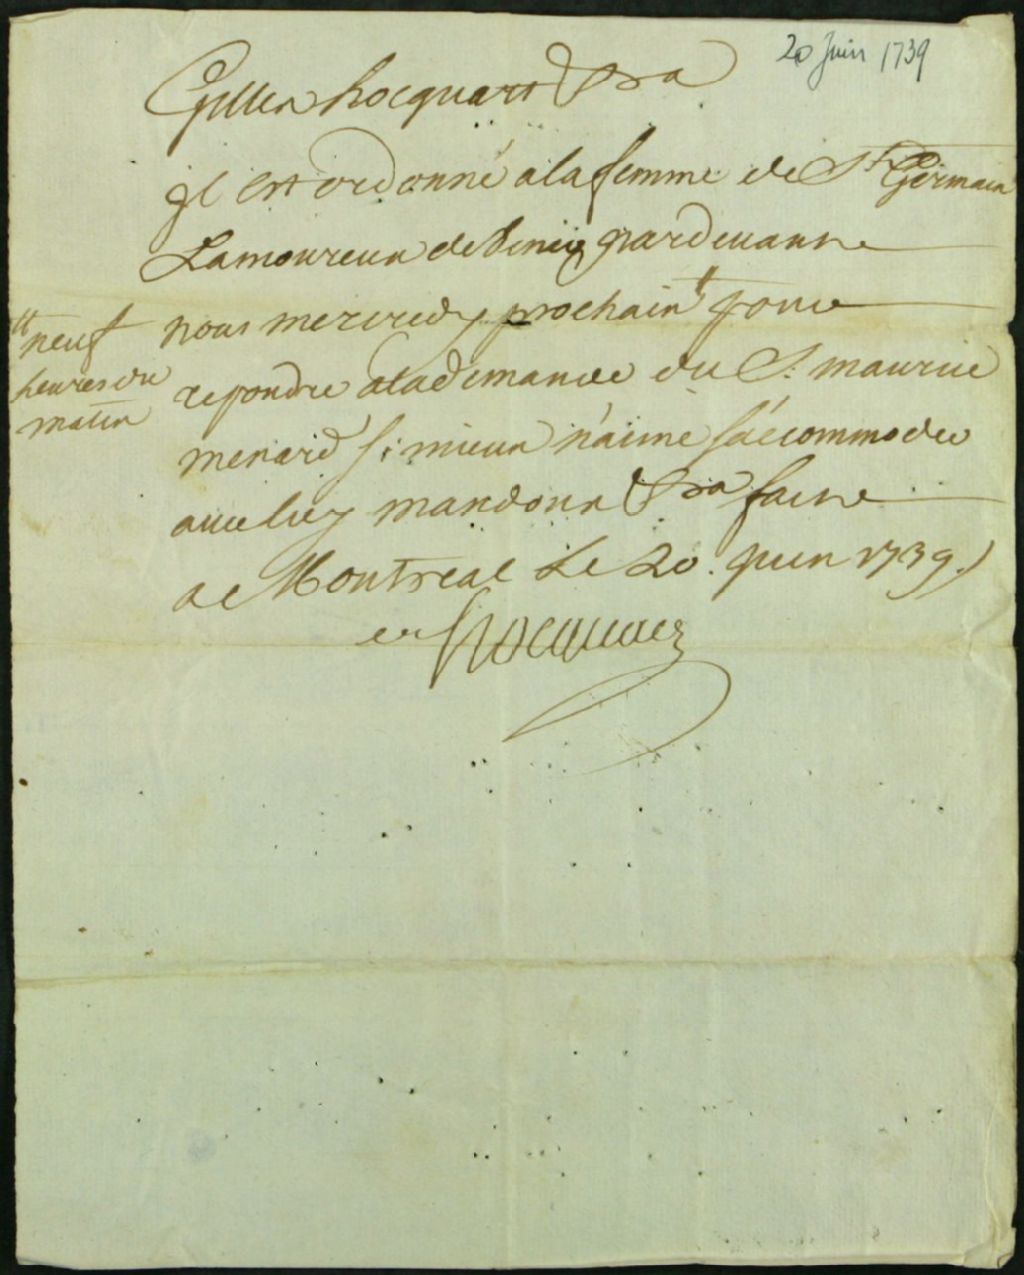 20 Juin 1739
Gilles hocquart &ca
Il est ordonné a la femme de St Germain
Lamoureux de venir pardevant
nous mercredy prochain pour
neuf
heures du
matin
repondre a la demande du S. maurice
menard si mieux n'aime s'accommoder
avec luy mandons &ca faire
a Montreal le 20. juin 1739.
hocquart